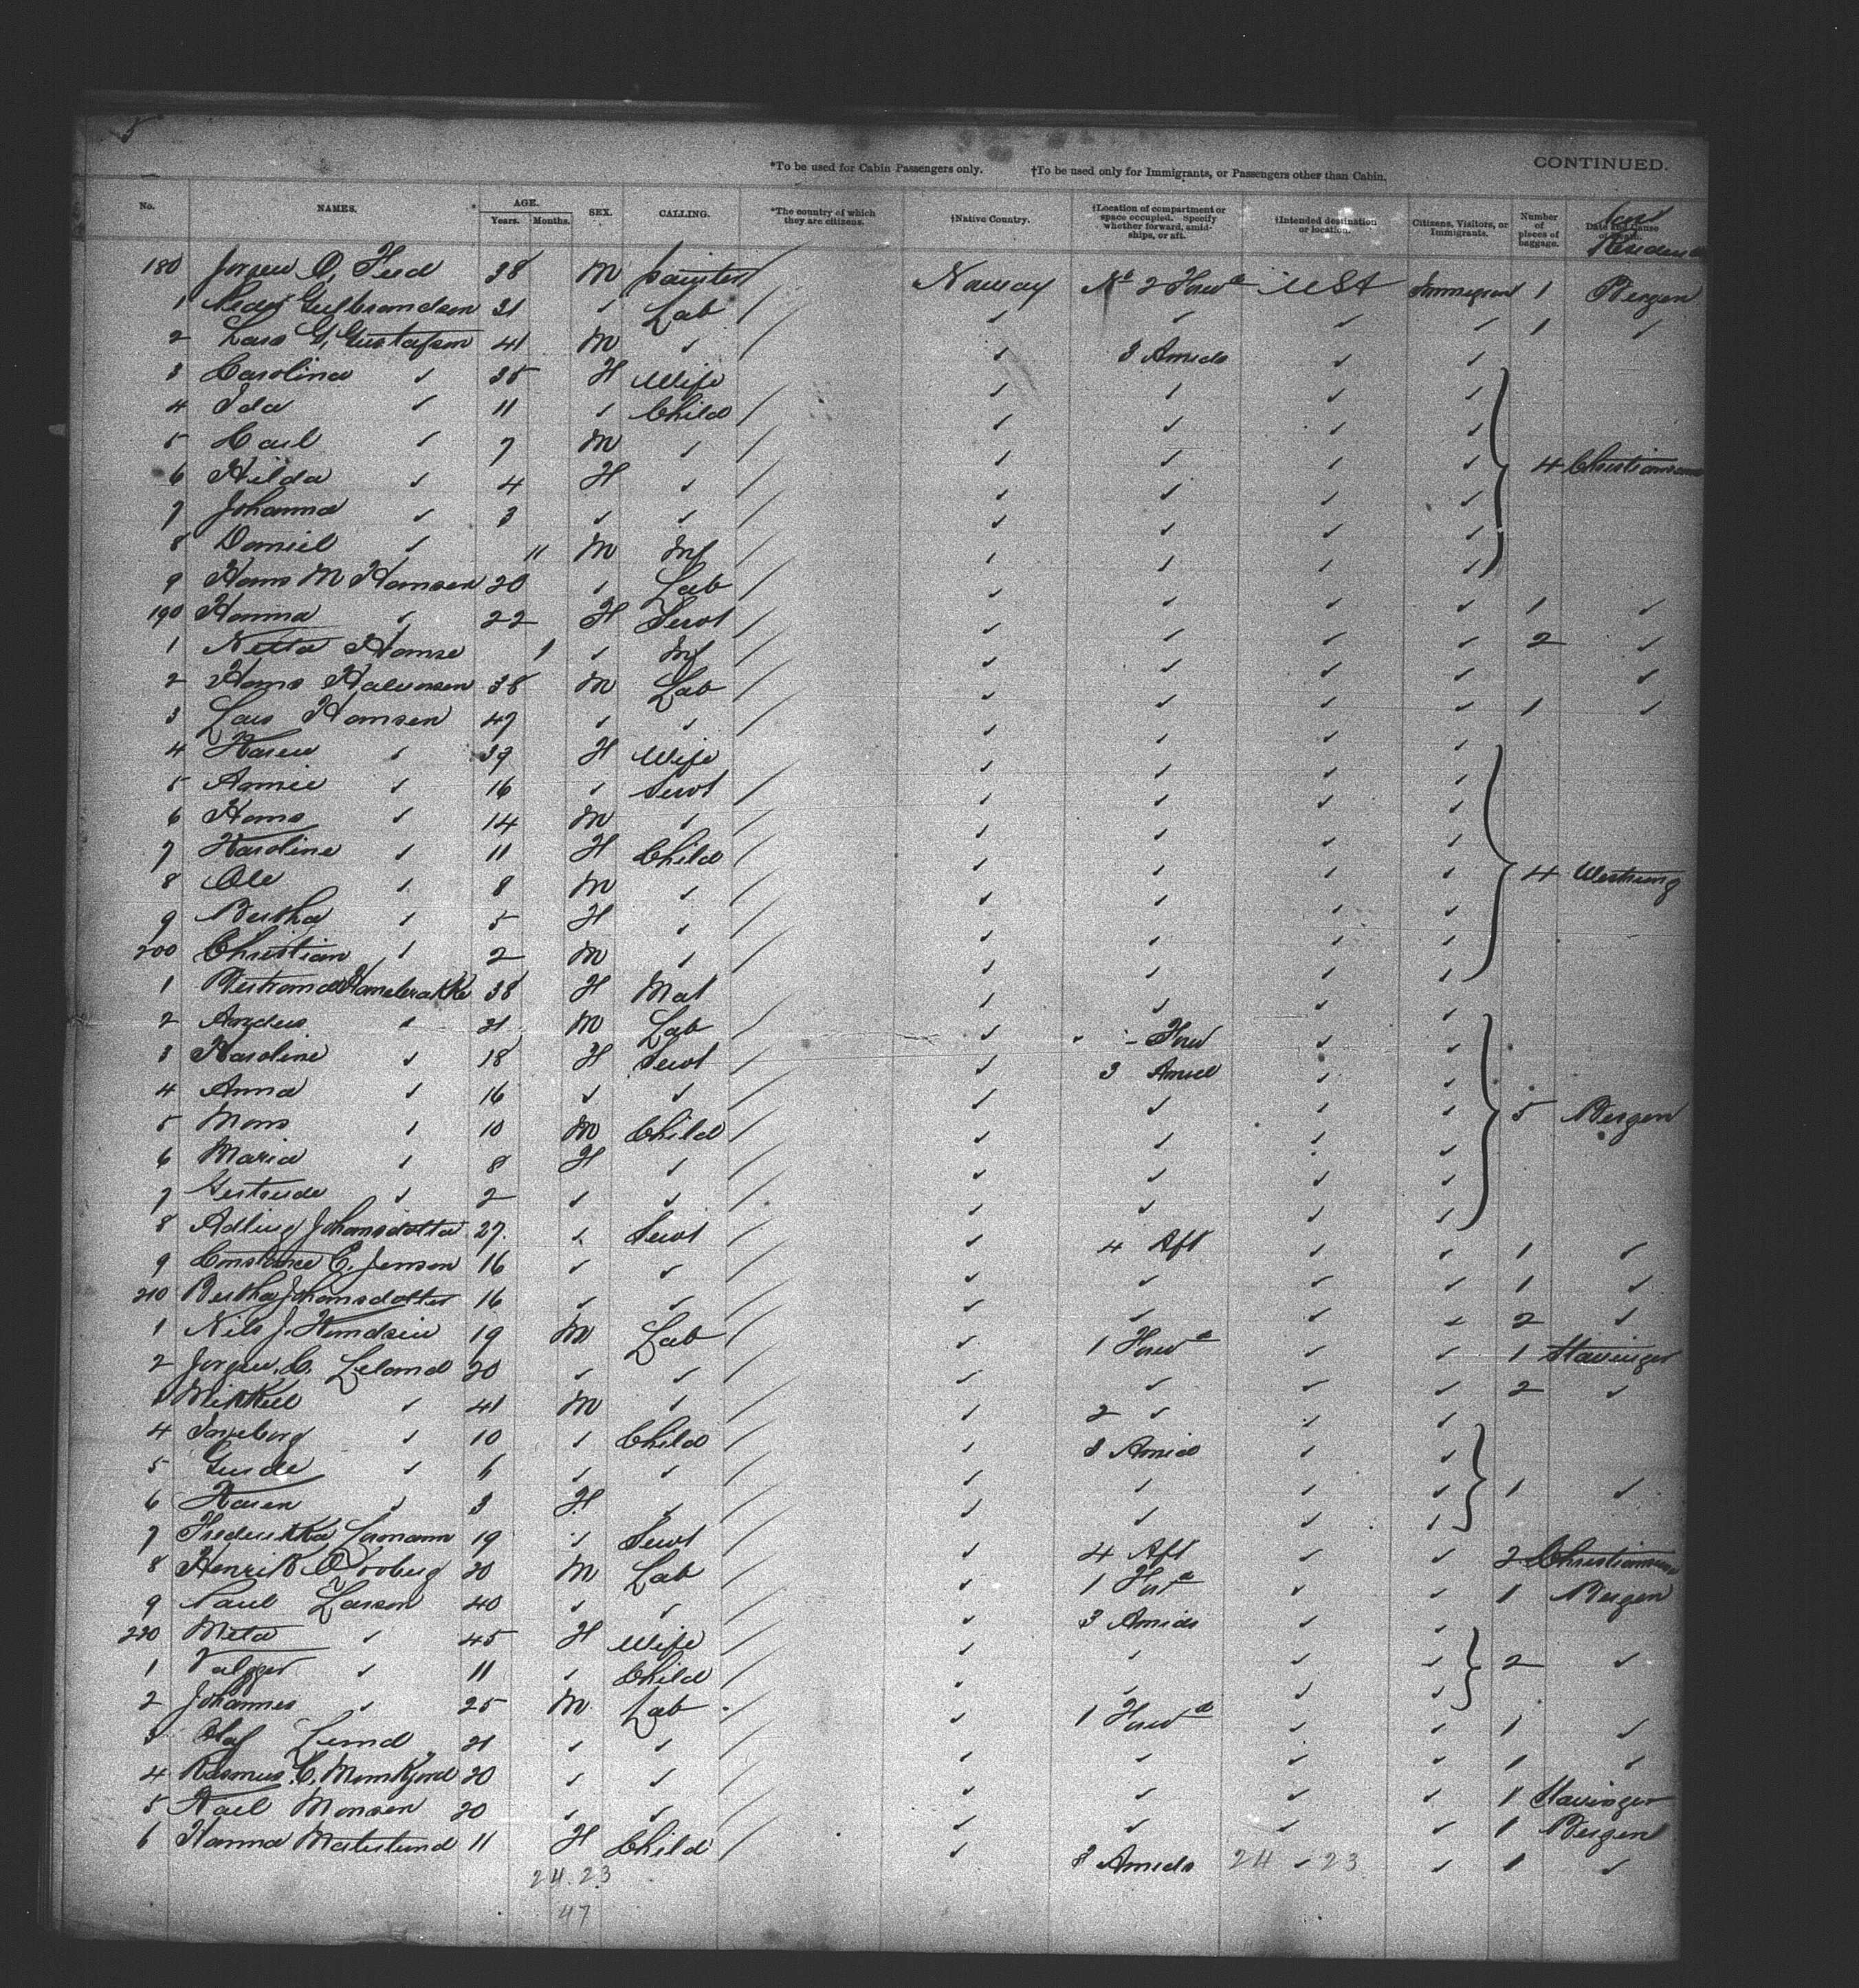 5
*To be used for Cabin Passengers only. †To be used only for Immigrants, or Passengers other than Cabin. CONTINUED.
No. NAMES. AGE. Years. Months. SEX. CALLING. *The country of which they are citizens. †Native Country. †Location of compartment or space occupied. Specify whether forward, amidships, or aft. †Intended destination or location. Citizens, Visitors, or Immigrants. Number of pieces of baggage. Date and cause of death. Last Residence
180 Jorgen O, 38 M painter / Norway No 2 Forwd USA Immigrant 1 Bergen
1 Gulbrandsen 31 ✓ Lab / ✓ ✓ ✓ ✓ 1 ✓
2 Lars G. Gustafson 41 M ✓ / ✓ 3 Amids ✓ ✓
3 Carolina ✓ 35 H Wife ✓ ✓ ✓ ✓
4 Ida ✓ 11 ✓ Child / ✓ ✓ ✓ ✓
5 Carl ✓ 7 M ✓ / ✓ ✓ ✓ ✓ 4 Christiansand
6 Hilda ✓ 4 H ✓ / ✓ ✓ ✓ ✓
7 Johanna ✓ 3 ✓ ✓ / ✓ ✓ ✓ ✓
8 Daniel ✓ 11 M Inf / ✓ ✓ ✓ ✓
9 Hans M Hansen 20 ✓ Lab / ✓ ✓ ✓ ✓ 1 ✓
190 Hanna ✓ 22 H Servt / ✓ ✓ ✓ ✓ 2 ✓
1 Netta Hanse 1 ✓ Inf / ✓ ✓ ✓ ✓ ✓
2 Hans Halvorsen 38 M Lab / ✓ ✓ ✓ ✓ 1 ✓
3 Lars Hansen 47 ✓ ✓ / ✓ ✓ ✓ ✓
4 Karen ✓ 39 H Wife ✓ ✓ ✓ ✓
5 Annie ✓ 16 ✓ Servt / ✓ ✓ ✓ ✓
6 Hans ✓ 14 M ✓ / ✓ ✓ ✓ ✓
7 Karoline ✓ 11 H Child / ✓ ✓ ✓ ✓ 4
8 Ole ✓ 8 M ✓ / ✓ ✓ ✓ ✓
9 Bertha ✓ 5 H ✓ / ✓ ✓ ✓ ✓
200 Christian ✓ 2 M ✓ / ✓ ✓ ✓ ✓
1 38 H Mat / ✓ ✓ ✓ ✓
2 Anders ✓ 21 M Lab / ✓ Forw ✓ ✓
3 Karoline ✓ 18 H Servt / ✓ 3 Amid ✓ ✓
4 Anna ✓ 16 ✓ ✓ / ✓ ✓ ✓ ✓ 5 Bergen
5 Mons ✓ 10 M Child / ✓ ✓ ✓ ✓
6 Maria ✓ 8 H ✓ / ✓ ✓ ✓ ✓
7 Gertrude ✓ 2 ✓ ✓ / ✓ ✓ ✓ ✓
8 Johansdotter 27 ✓ Servt / ✓ 4 Aft ✓ ✓ 1 ✓
9 Constance E. Jensen 16 ✓ ✓ / ✓ ✓ ✓ ✓ 1 ✓
210 Bertha Johansdotter 16 ✓ ✓ / ✓ ✓ ✓ ✓ 2 ✓
1 Nils J. 19 M Lab / ✓ 1 Forwd ✓ ✓ 1 Stavinger
2 Jorgen C. Leland 20 ✓ ✓ / ✓ ✓ ✓ ✓ 2 ✓
3 Mikkel ✓ 41 M ✓ / ✓ 2 ✓ ✓ ✓
4 Ingeborg ✓ 10 ✓ Child / ✓ 3 Amid ✓ ✓
5 ✓ 6 ✓ ✓ / ✓ ✓ ✓ ✓ 1 ✓
6 Karen ✓ 3 H ✓ / ✓ ✓ ✓ ✓
7 Frederikka 19 ✓ Servt / ✓ 4 Aft ✓ ✓ 2 Christiansand
8 Henrik 20 M Lab / ✓ 1 Forwd ✓ ✓ 1 Bergen
9 Paul Larson 40 ✓ ✓ / ✓ 3 Amids ✓ ✓
220 Meta ✓ 45 H Wife / ✓ ✓ ✓ ✓ 2 ✓
1 ✓ 11 ✓ Child / ✓ ✓ ✓ ✓
2 Johannes ✓ 25 M Lab / ✓ 1 Forwd ✓ ✓ 1 ✓
3 Olaf Lund 21 ✓ ✓ / ✓ ✓ ✓ ✓ 1 ✓
4 Rasmus C. 20 ✓ ✓ / ✓ ✓ ✓ ✓ 1 Stavinger
5 Karl Monsen 20 ✓ ✓ / ✓ ✓ ✓ ✓ 1 Bergen
6 Hanna 11 H Child / ✓ 3 Amids ✓ ✓ 1 ✓
24 23 24 23
47